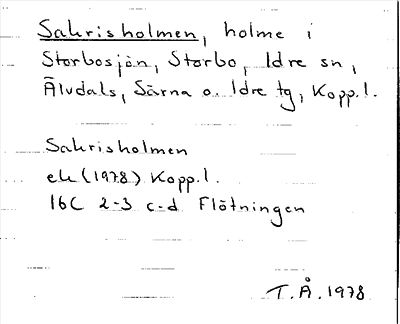 Sakrisholmen, holme i
Storbosjön, Storbo, Idre sn,
Älvdals, Särna o. Idre tg, Kopp.l.
Sakrisholmen
ek (1978) Kopp.l.
16C 2-3 c-d Flötningen
T.Å. 1978